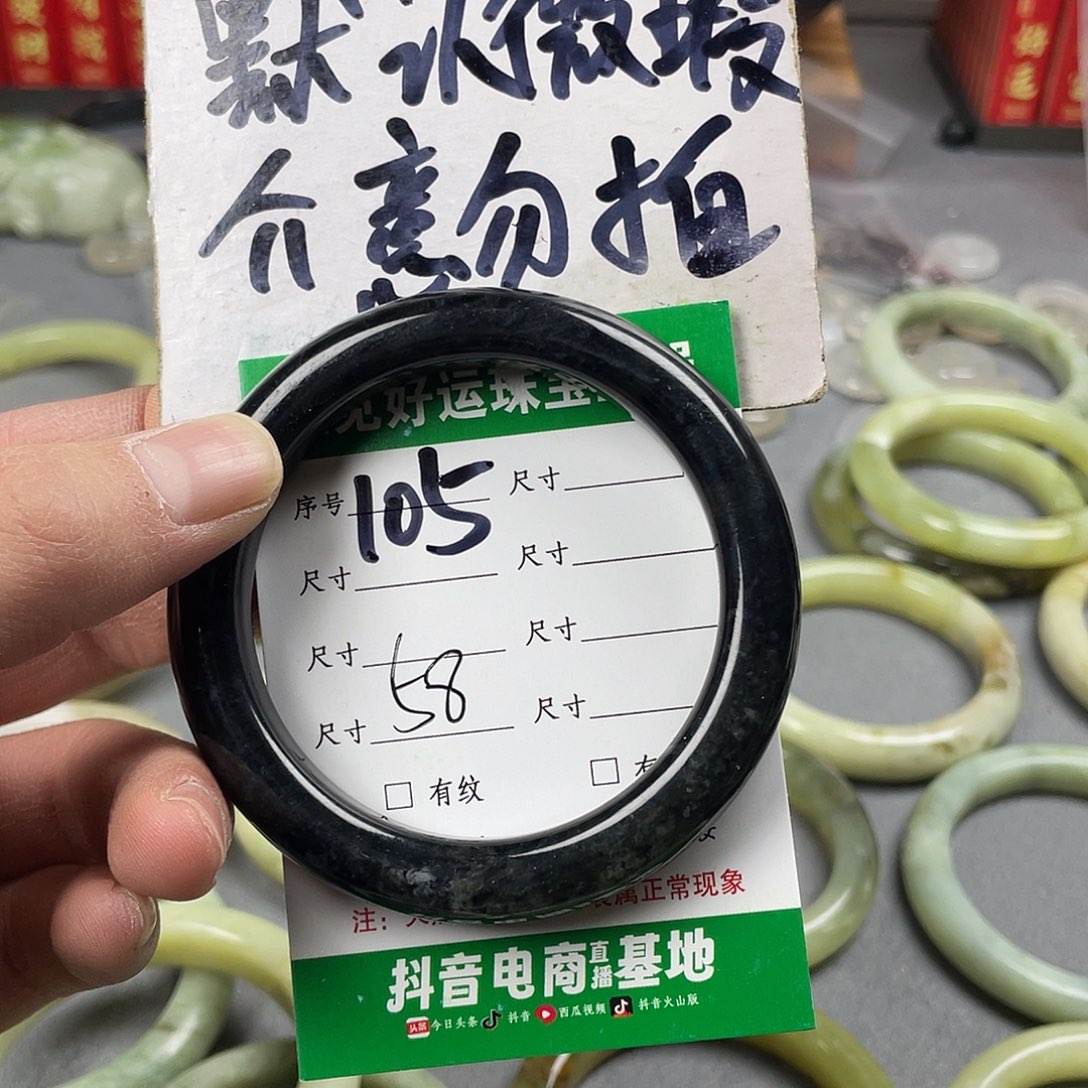 默认微瑕
介意勿拍
见好运珠宝
序号 105 尺寸
尺寸 尺寸
尺寸 尺寸
尺寸 58 尺寸
□ 有纹 □ 有
注： 属正常现象
抖音电商直播基地
头条 今日头条 抖音 西瓜视频 抖音火山版